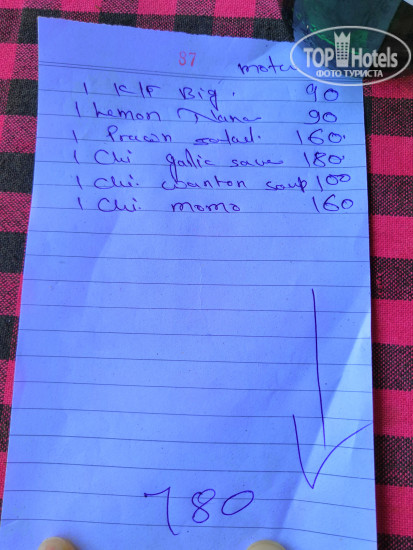 TOP Hotels
ФОТО ТУРИСТА
87
1 KIF Big. 90
1 Lemon Nana 90
1 Prawn salad. 160.
1 Chi galic save 180.
1 Chi. wanton soup 100
1 Chi. momo 160
780